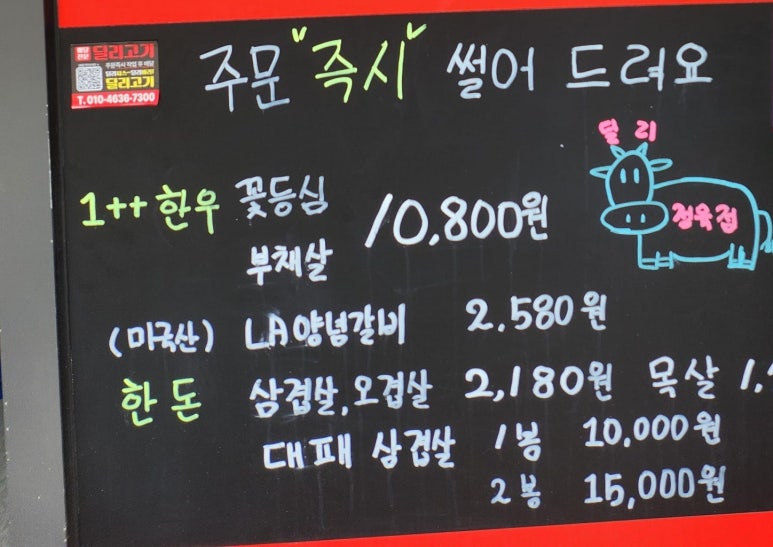 배달전문 딜리고기
주문즉시 작업 후 배달
딜리고기
T. 010-4636-7300
주문 "즉시" 썰어 드려요
딜리
정육점
1++ 한우 꽃등심 10,800원
부채살
(미국산) LA양념갈비 2.580원
한돈 삼겹살,오겹살 2,180원 목살 1,
대패 삼겹살 1봉 10,000원
2봉 15,000원